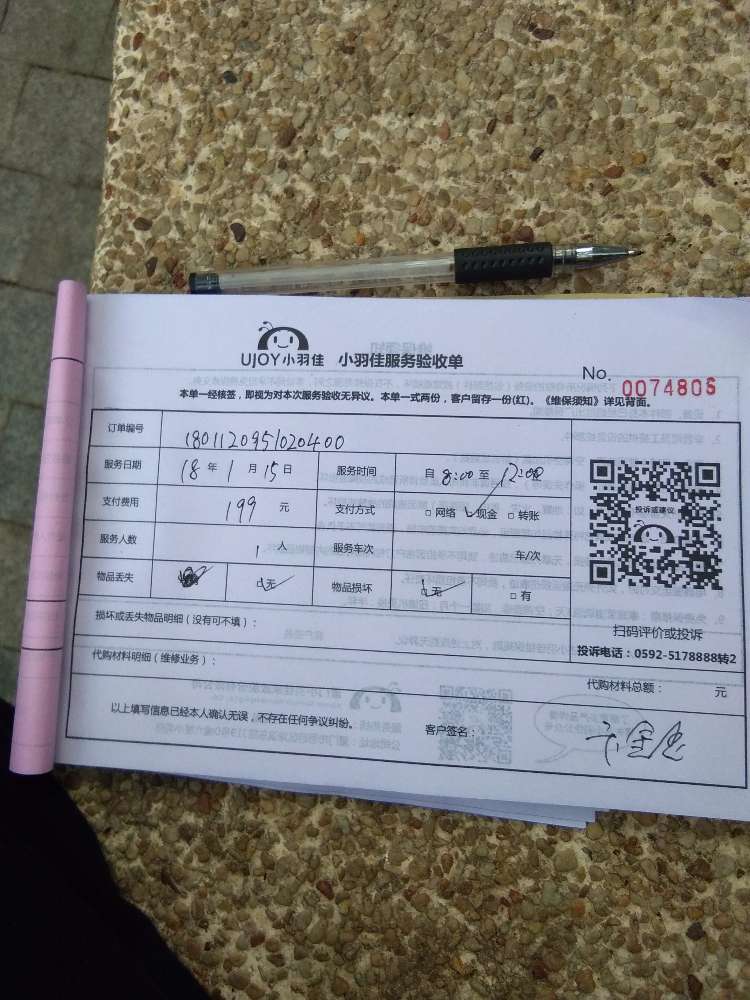 UJOY小羽佳 小羽佳服务验收单
No. 0074806
本单一经核签，即视为对本次服务验收无异议。本单一式两份，客户留存一份(红)。《维保须知》详见背面。
订单编号 180112095102040​0
服务日期 18 年 1 月 15 日 服务时间 自 8:00 至 12:00
支付费用 199 元 支付方式 □ 网络 □ 现金 □ 转账
服务人数 1 人 服务车次 车/次
物品丢失 □ 无 物品损坏 □ 无 □ 有
投诉或建议
扫码评价或投诉
投诉电话：0592-5178888转2
损坏或丢失物品明细（没有可不填）：
代购材料明细（维修业务）：
代购材料总额： 元
以上填写信息已经本人确认无误，不存在任何争议纠纷。 客户签名：